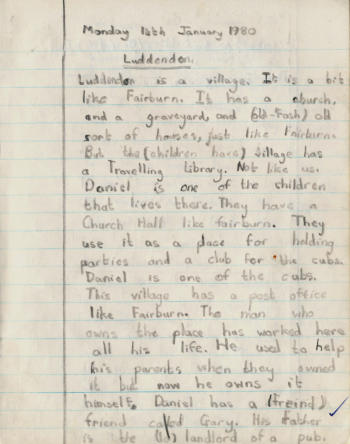 Monday 14th January 1980
Luddenden.
Luddenden is a village. It is a bit
like Fairburn. It has a church,
and a graveyard, and (old-Fash) all
sort of houses, just like Fairburn.
But the (children have) village has
a Travelling Library. Not like us.
Daniel is one of the children
that lives there. They have a
Church Hall like fairburn. They
use it as a place for holding
parties and a club for the cubs.
Daniel is one of the cubs.
This village has a post office
like Fairburn. The man who
owns the place has worked here
all his life. He used to help
his parents when they owned
it but now he owns it
himself. Daniel has a (freind)
friend called Gary. His Father
is the landlord of a pub.